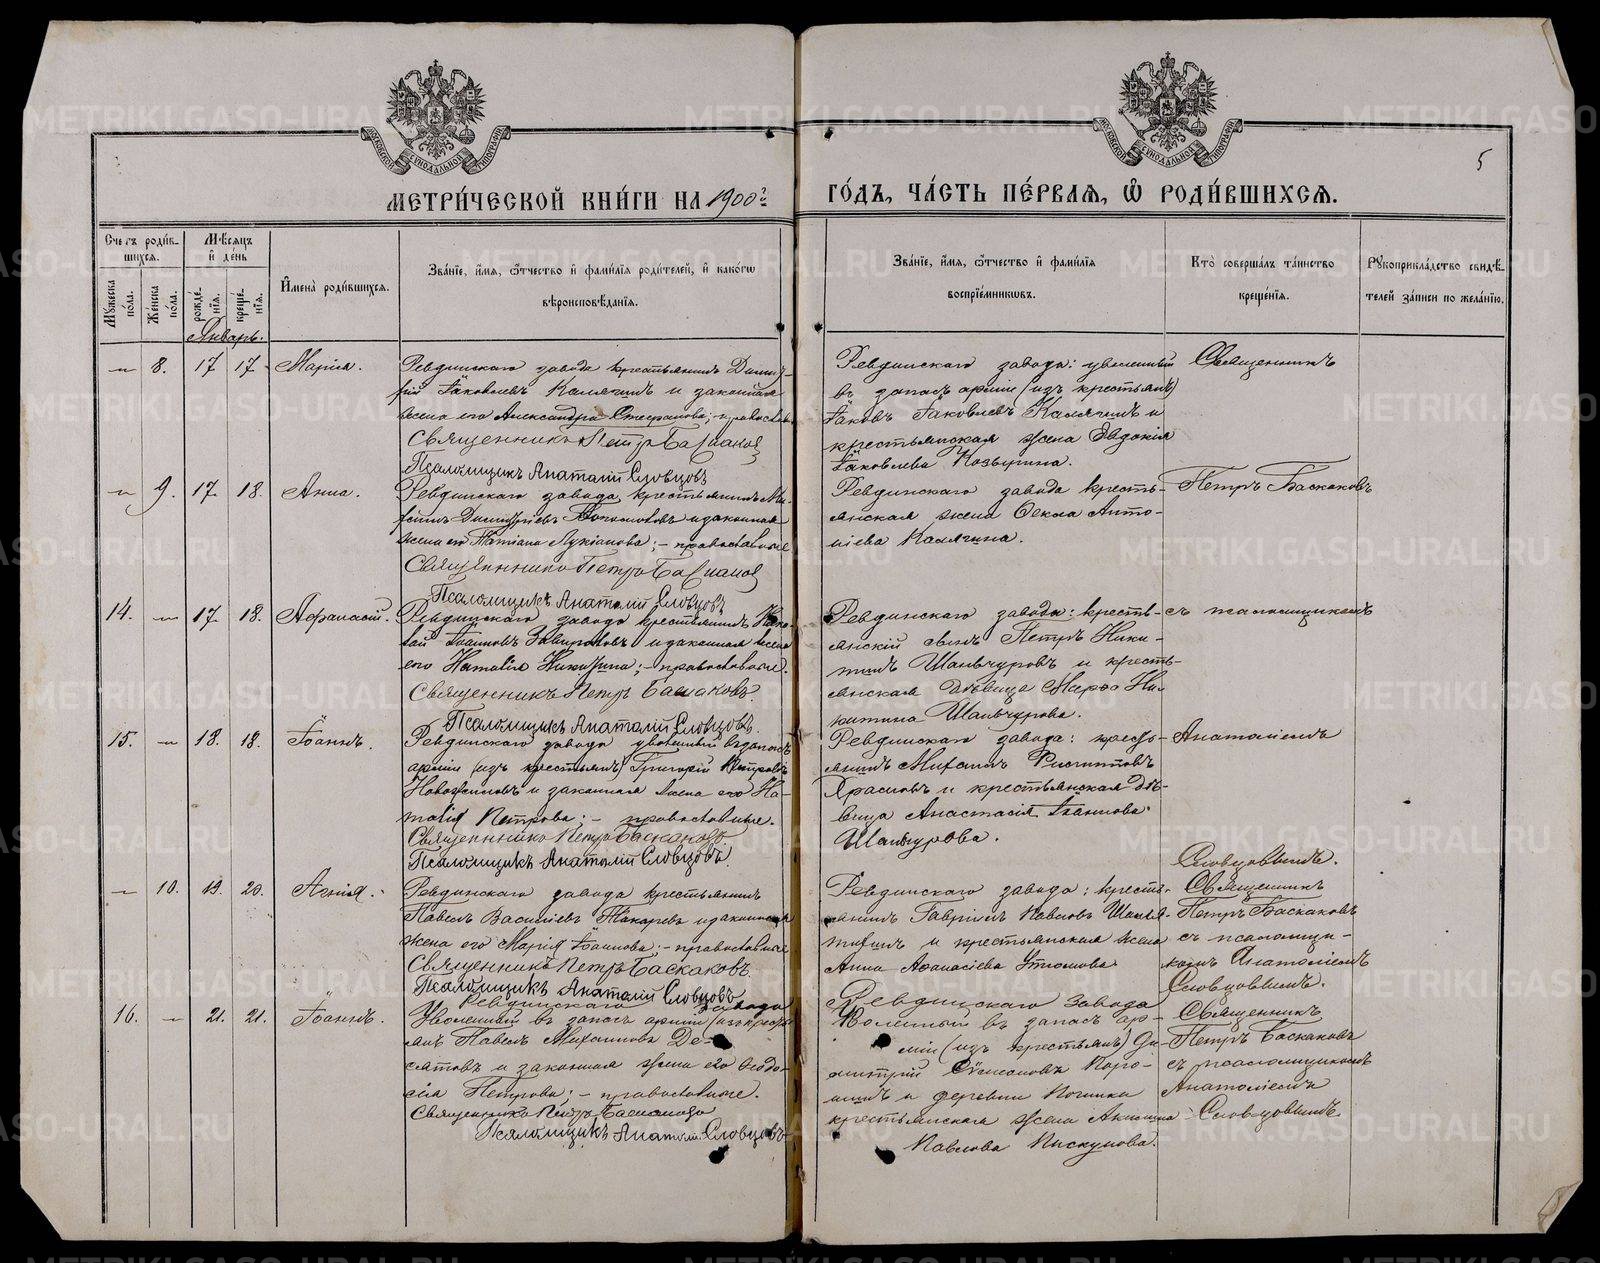 5
МЕТРИ́ЧЕСКОЙ КНИ́ГИ НА 1900й
ГО́ДЪ, ЧА́СТЬ ПЕ́РВАЯ, Ѽ РОДИ́ВШИХСЯ.
Счетъ роди́вшихся.
Мꙋ́жеска по́ла.
Же́нска по́ла.
Мѣ́сяцъ и҆ де́нь
рожде́нїя.
креще́нїя.
И҆мена̀ роди́вшихся.
Зва́нїе, и҆́мя, ѻ҆́тчество и҆ фами́лїя роди́телей, и҆ како́гѡ
вѣроисповѣ́данїя.
Зва́нїе, и҆́мя, ѻ҆́тчество и҆ фами́лїя
воспрїе́мникѡвъ.
Кто̀ соверша́лъ та́инство
креще́нїя.
Рꙋкоприкла́дство свидѣ́-
телей за́писи по жела́нїю.
Январь.
" 8. 17 17 Марія.
Ревдинскаго завода крестьянинъ Димит-
рій Іаковлевъ Калягинъ и законная
жена его Александра Стефанова; православ.
Священникъ Петръ Баскаковъ
Псаломщикъ Анатолій Словцовъ
Ревдинскаго завода: уволенный
въ запасъ арміи (изъ крестьянъ)
Іаковъ Іаковлевъ Калягинъ и
крестьянская жена Евдокія
Іаковлева Козырина.
Священникъ
" 9. 17. 18. Анна.
Ревдинскаго завода крестьянинъ
Димитріевъ и законная
жена его Татіана Лукіанова; - православные
Священникъ Петръ Баскаковъ
Псаломщикъ Анатолій Словцовъ
Ревдинскаго завода кресть-
янская жена Ѳекла Анто-
ніева Калягина.
Петръ Баскаковъ
14. " 17. 18. Аѳанасій.
Ревдинскаго завода крестьянинъ
Іоанновъ и законная жена
его Наталія Никитина; - православные.
Священникъ Петръ Баскаковъ
Псаломщикъ Анатолій Словцовъ.
Ревдинскаго завода: кресть-
янскій сынъ Петръ Ники-
тинъ Шанчуровъ и кресть-
янская дѣвица Марѳа Ни-
китина Шанчурова.
съ псаломщикомъ
15. " 18. 18. Іоаннъ.
Ревдинскаго завода уволенный въ запасъ
арміи (изъ крестьянъ) Григорій Петровъ
и законная жена его На-
талія Петрова; - православные.
Священникъ Петръ Баскаковъ.
Псаломщикъ Анатолій Словцовъ.
Ревдинскаго завода: кресть-
янинъ Михаилъ
и крестьянская дѣ-
вица Анастасія Іоаннова
Шанчурова.
Анатоліемъ
Словцовымъ.
" 10. 19. 20. Агнія.
Ревдинскаго завода крестьянинъ
Павелъ Василіевъ Токаревъ и законная
жена его Марія Іоаннова: - православные
Священникъ Петръ Баскаковъ.
Псаломщикъ Анатолій Словцовъ
Ревдинскаго завода: кресть-
янинъ Гавріилъ Павловъ
и крестьянская жена
Анна Аѳанасіева
Священникъ
Петръ Баскаковъ
съ псаломщи-
комъ Анатоліемъ
Словцовымъ.
16. " 21. 21. Іоаннъ.
Ревдинскаго завода
Уволенный въ запасъ арміи (изъ кресть-
янъ Павелъ Михаиловъ Де-
сятовъ и законная жена его Ѳеодо-
сія Петрова; - православные.
Священникъ Петръ Баскаковъ
Псаломщикъ Анатолій Словцовъ
Ревдинскаго завода
Уволенный въ запасъ ар-
міи (изъ крестьянъ) Ди-
митрій Сѵмеоновъ
и деревни Починка
крестьянская жена
Павлова Пискунова.
Священникъ
Петръ Баскаковъ
съ псаломщикомъ
Анатоліемъ
Словцовымъ.
METRIKI.GASO-URAL.RU